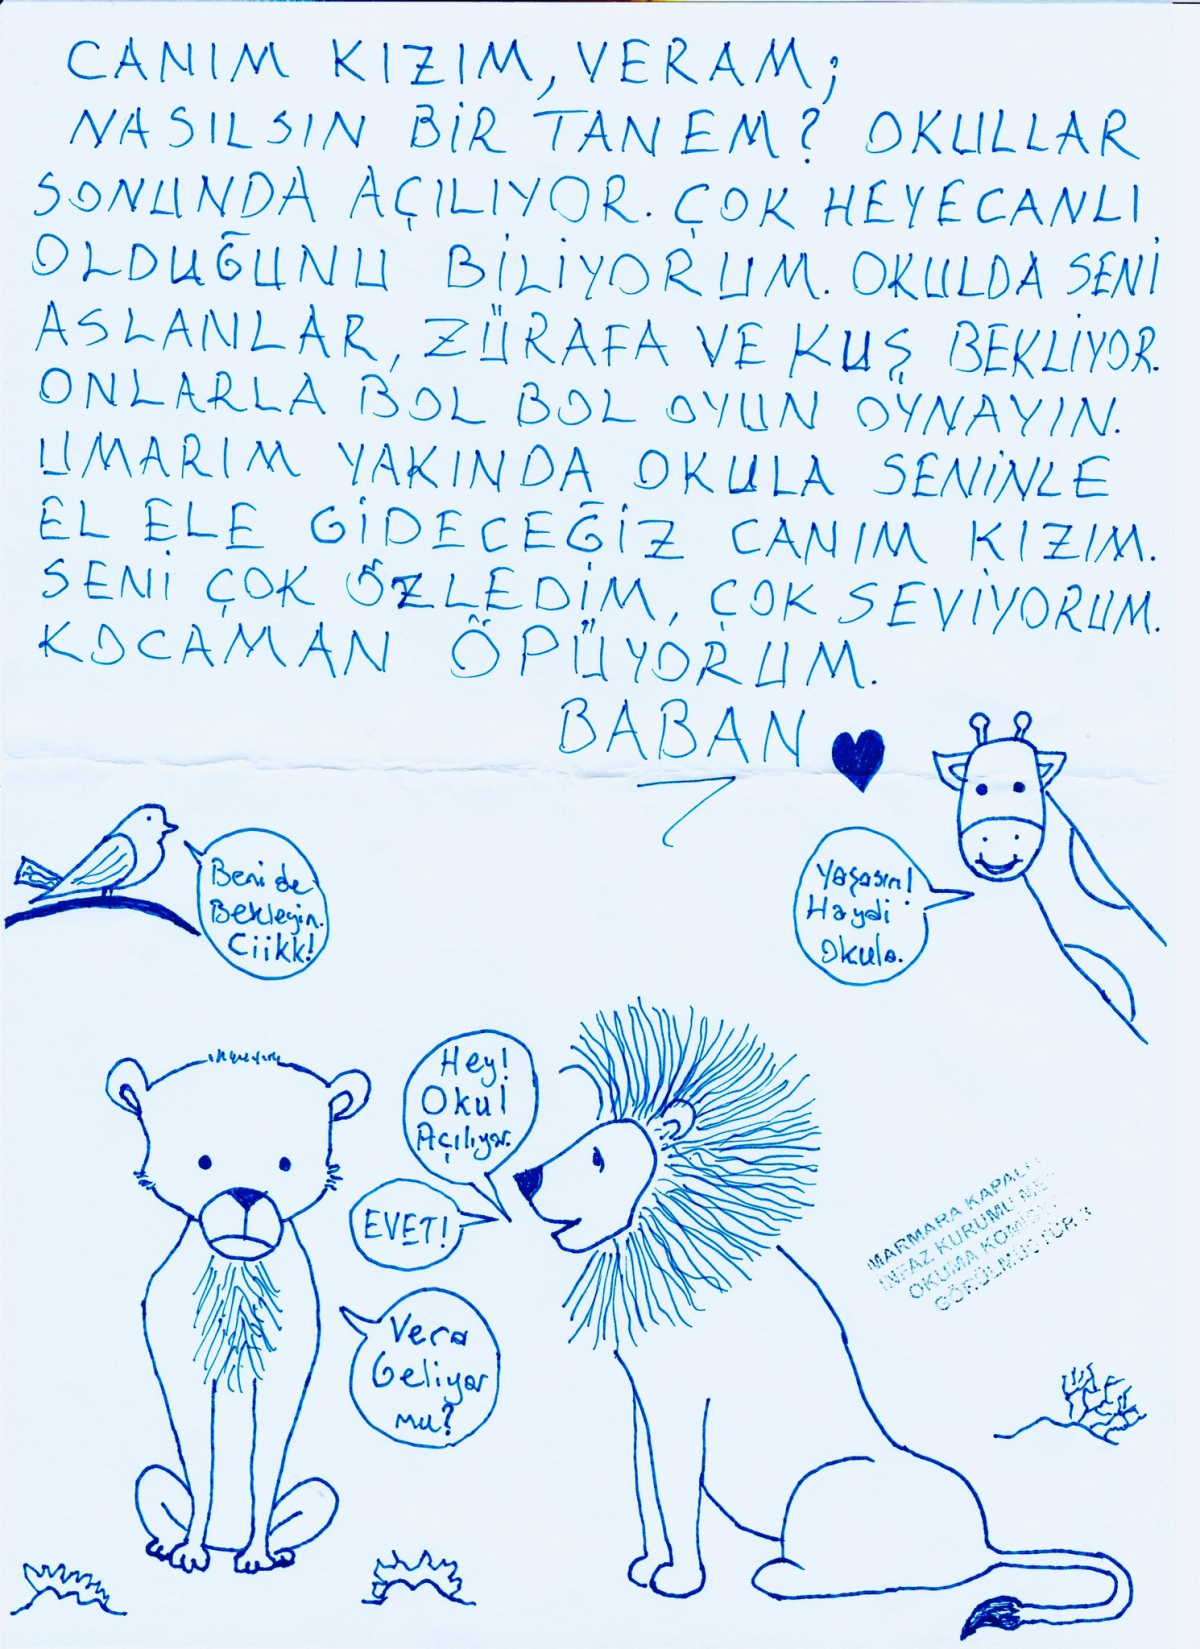 CANIM KIZIM, VERAM;
NASILSIN BİR TANEM? OKULLAR
SONUNDA AÇILIYOR. ÇOK HEYECANLI
OLDUĞUNU BİLİYORUM. OKULDA SENİ
ASLANLAR, ZÜRAFA VE KUŞ BEKLİYOR.
ONLARLA BOL BOL OYUN OYNAYIN.
UMARIM YAKINDA OKULA SENİNLE
EL ELE GİDECEĞİZ CANIM KIZIM.
SENİ ÇOK ÖZLEDİM, ÇOK SEVİYORUM.
KOCAMAN ÖPÜYORUM.
BABAN
Beni de
Bekleyin.
Ciikk!
Yaşasın!
Haydi
Okula.
Hey!
Okul
Açılıyor.
EVET!
Vera
Geliyor
mu?
MARMARA KAPALI
İNFAZ KURUMU
OKUMA
GÖRÜLMÜŞTÜR